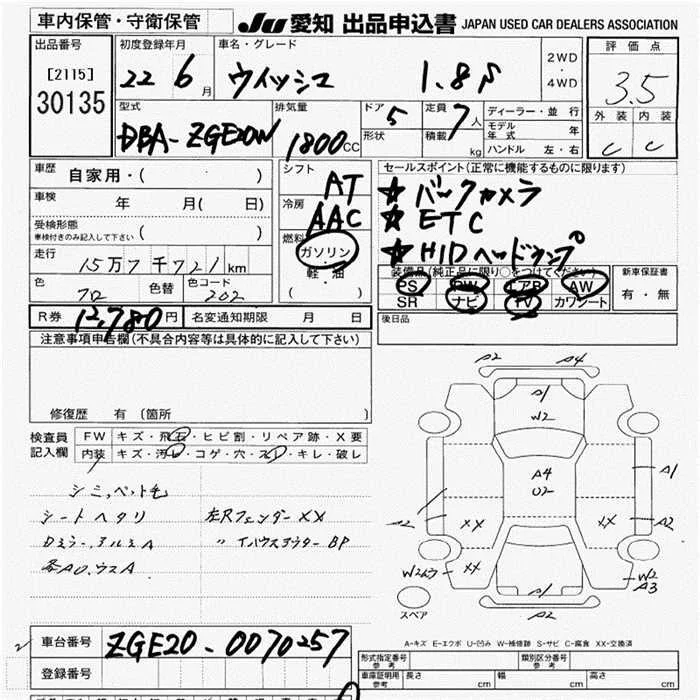 車内保管・守衛保管
JU 愛知 出品申込書 JAPAN USED CAR DEALERS ASSOCIATION
出品番号
[2115]
30135
初度登録年月
22 6月
車名・グレード
ウィッシュ 1.8S
2WD
・
4WD
評価点
3.5
外装 内装
C C
型式
DBA-ZGE20W
排気量
1800CC
ドア 5
形状
定員 7人
積載 kg
ディーラー・並行
モデル年式 年
ハンドル 左・右
車歴 自家用・( )
車検 年 月( 日)
受検形態
車検付きのみ記入して下さい ( )
走行 15万7千721km
色 クロ 色替 色コード 202
シフト AT
冷房 AAC
燃料
ガソリン
・
軽・油
( )
セールスポイント(正常に機能するものに限ります)
★バックカメラ
★ETC
★HIDヘッドランプ
装備品(純正品に限り○をつけてください)
PS PW エアB AW
SR ナビ TV カワシート
新車保証書
有・無
R券 12,780円 名変通知期限 月 日
後日品
注意事項申告欄(不具合内容等は具体的に記入して下さい)
修復歴 有 (箇所 )
検査員記入欄
FW キズ・飛石・ヒビ割・リペア跡・X要
内装 キズ・汚レ・コゲ・穴・スレ・キレ・破レ
シミ,ペット毛
シートヘタリ 左RフェンダーXX
Dミラー,アルミA 〃 IハウスアウターBP
各AO,ウスA
A2 A4
A1
W2
A4
U2
A1
A2 XX XX A2
XX
W2
A3
A1
A2
スペア
A-キズ E-エクボ U-凹み W-補修跡 S-サビ C-腐食 XX-交換済
車台番号 ZGE20-0070257
登録番号
形式指定番号
参考
類別区分番号
参考
車庫証明用
参考
長さ cm 幅 cm 高さ cm